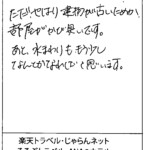 ただ、やはり建物が古いためか、
部屋がかび臭いです。
あと、水まわりももう少し
なんとかなればと思います。
楽天トラベル・じゃらんネット